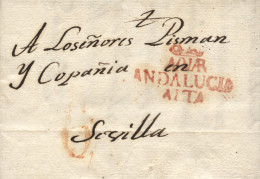 A Loseñores Pisman
Y Copañia en
ANDALUCIA
ALTA
Sevilla